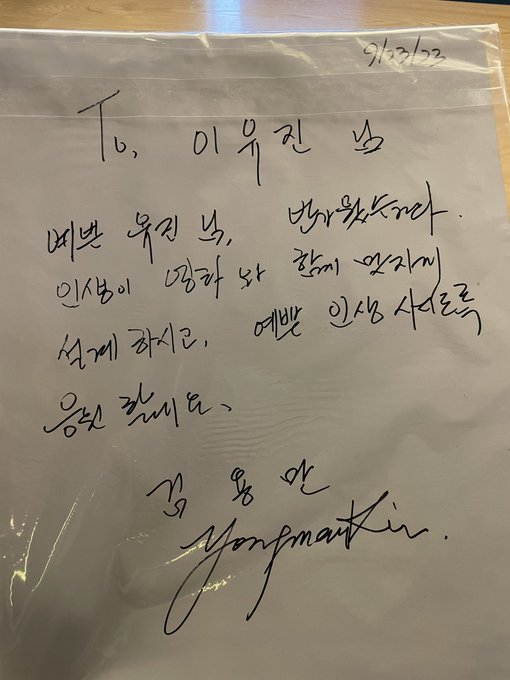 9/23/23
To, 이유진 님
예쁜 유진 님, 반가웠습니다.
인생이 영화와 함께 멋지게
설계하시고, 예쁜 인생 사시도록
응원 할께요.
김용만
Yongman Kim.